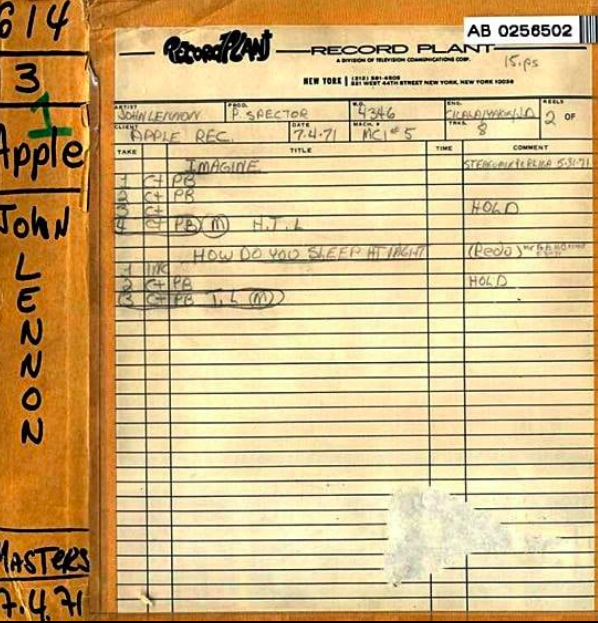 614
3
1
Apple
JOHN
LENNON
MASTERS
7.4.71
AB 0256502
Record Plant
RECORD PLANT
A DIVISION OF TELEVISION COMMUNICATIONS CORP.
15.ps
NEW YORK (212) 581-6505
321 WEST 44TH STREET NEW YORK, NEW YORK 10036
ARTIST JOHN LENNON PROD. P. SPECTOR W.O. 4346 ENG. REELS 2 OF
CLIENT APPLE REC. DATE 7.4.71 MACH. # MCI #5 TRKS. 8
TAKE TITLE TIME COMMENT
IMAGINE 5-31-71
1 C+ PB
2 C+ PB
3 C+ HOLD
4 C+ PB (M) H.T.L
HOW DO YOU SLEEP AT NIGHT (Redo)
1 INC
2 C+ PB HOLD
3 C+ PB T.L (M)